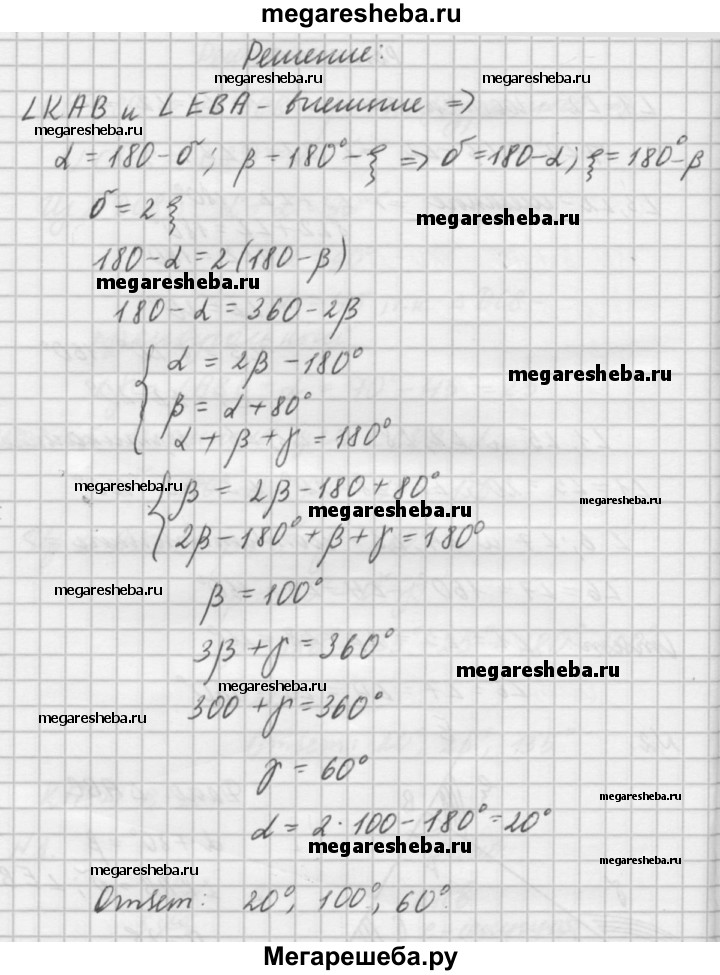 megaresheba.ru
Решение:
megaresheba.ru megaresheba.ru
∠KAB и ∠EBA - внешние ⇒
megaresheba.ru
α = 180 - б; β = 180° - ξ ⇒ б = 180 - α; ξ = 180° - β
б = 2ξ
megaresheba.ru
180 - α = 2(180 - β)
megaresheba.ru
180 - α = 360 - 2β
α = 2β - 180°
megaresheba.ru
β = α + 80°
α + β + γ = 180°
megaresheba.ru
β = 2β - 180 + 80°
megaresheba.ru megaresheba.ru
2β - 180° + β + γ = 180°
megaresheba.ru
β = 100°
3β + γ = 360°
megaresheba.ru
megaresheba.ru
300 + γ = 360°
megaresheba.ru
γ = 60°
megaresheba.ru
α = 2·100 - 180° = 20°
megaresheba.ru
megaresheba.ru
megaresheba.ru
Ответ: 20°, 100°, 60°.
Мегарешеба.ру